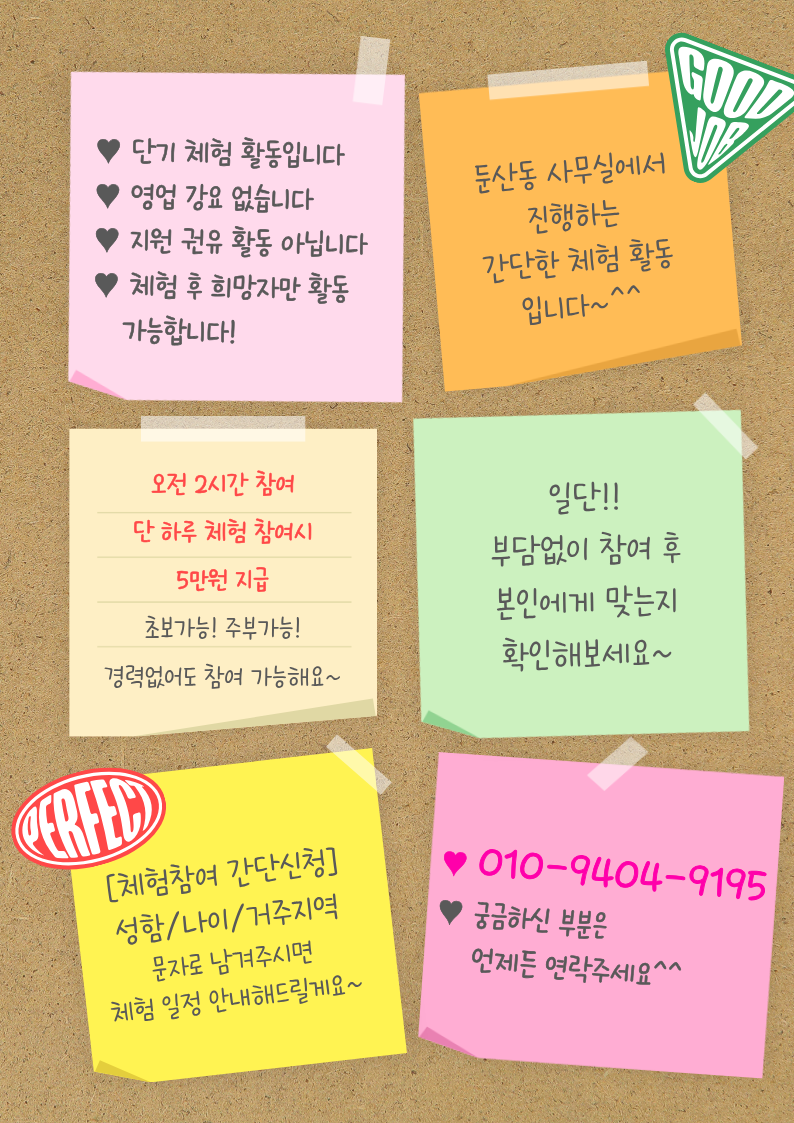 ♥ 단기 체험 활동입니다
♥ 영업 강요 없습니다
♥ 지원 권유 활동 아닙니다
♥ 체험 후 희망자만 활동
가능합니다!
GOOD
JOB
둔산동 사무실에서
진행하는
간단한 체험 활동
입니다~^^
오전 2시간 참여
단 하루 체험 참여시
5만원 지급
초보가능! 주부가능!
경력없어도 참여 가능해요~
일단!!
부담없이 참여 후
본인에게 맞는지
확인해보세요~
PERFECT
[체험참여 간단신청]
성함/나이/거주지역
문자로 남겨주시면
체험 일정 안내해드릴게요~
♥ 010-9404-9195
♥ 궁금하신 부분은
언제든 연락주세요^^